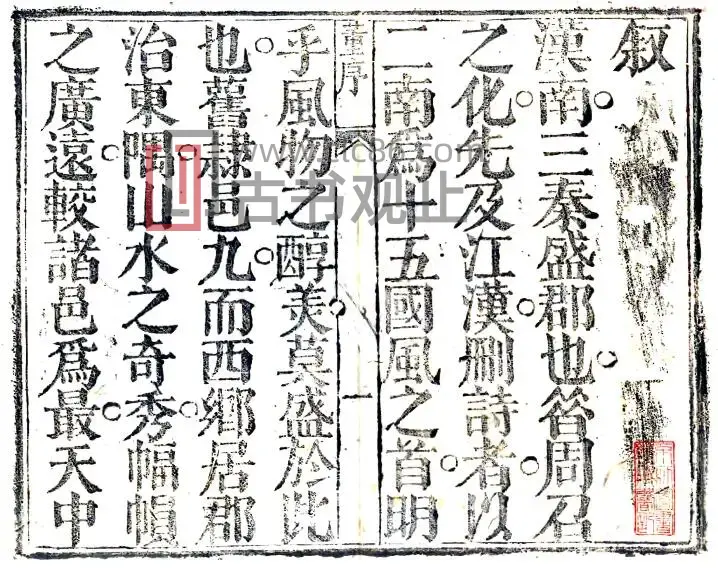 叙
漢南三秦盛郡也昝周召
之化先及江漢刪詩者以
二南爲十五國風之首明
董序
一
乎風物之醇美莫盛於此
也舊隷邑九而西鄉居郡
治東隅山水之奇秀幅幀
之廣遠較諸邑爲最天中
古书观止